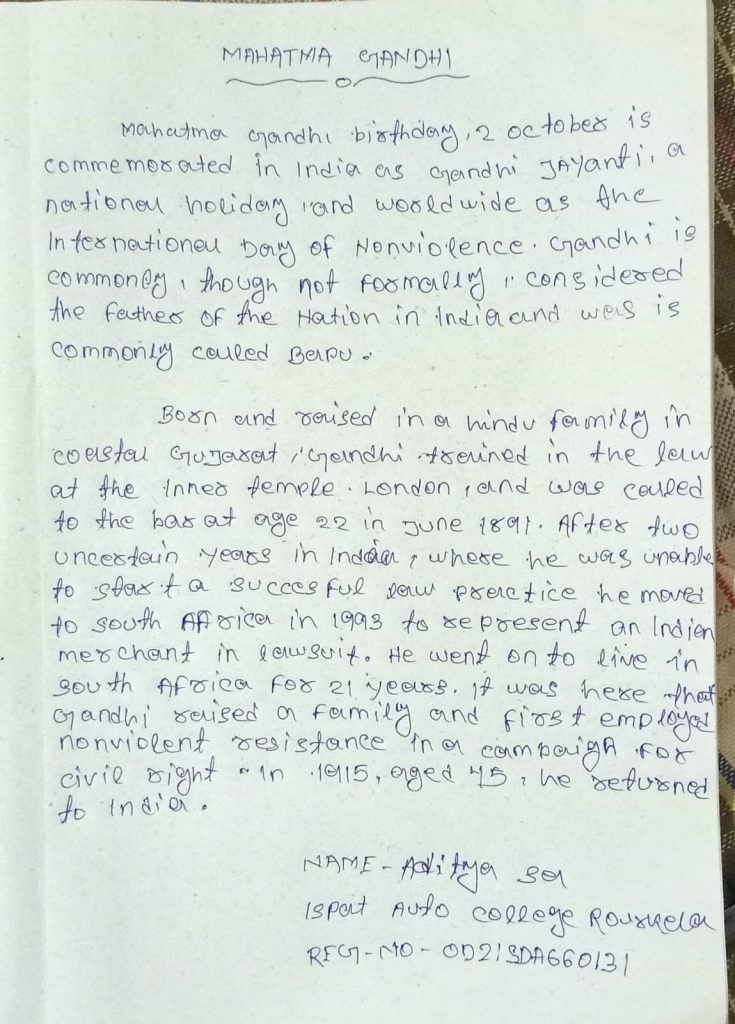 MAHATMA GANDHI
Mahatma Gandhi birthday, 2 october is
commemorated in India as Gandhi JAYanti, a
national holiday, and worldwide as the
International Day of Nonviolence. Gandhi is
commonly, though not formally, considered
the father of the Nation in India and was is
commonly called Bapu.
Born and raised in a hindu family in
coastal Gujarat, Gandhi trained in the law
at the Inner temple. London, and was called
to the bar at age 22 in June 1891. After two
uncertain years in India, where he was unable
to start a succesful law practice he moved
to south Africa in 1993 to represent an Indian
merchant in lawsuit. He went on to live in
south Africa for 21 years. It was here that
Gandhi raised a family and first employed
nonviolent resistance in a campaign for
civil right. In 1915, aged 45, he returned
to India.
NAME - Aditya sa
Ispat Auto college Rourkela
REG-NO - OD21SDA660131